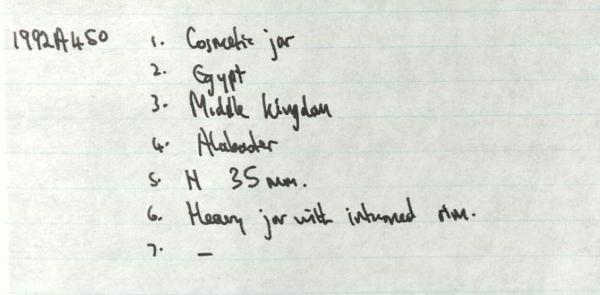 1992A450 1. Cosmetic jar
2. Egypt
3. Middle Kingdom
4. Alabaster
5. H 35 mm.
6. Heavy jar with inturned rim.
7. –